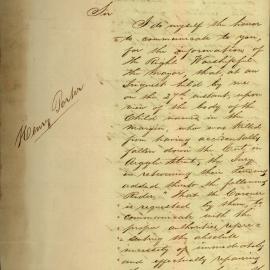 Sir
I do myself the honor
to communicate to you,
for the information of
the Right Worshipful
the Mayor, that, at an
Inquest held by me
on the instant, upon
view of the body of the
Child named in the
Margin, who was killed
from having accidentally
fallen down the Cut, in
Argyle Street, the Jury
in returning their
added thereto the following
Rider: That the Coroner
is requested by them, to
communicate with the
proper authorities repre-
senting the absolute
necessity of immediately
and effectually repairing
Henry Porter